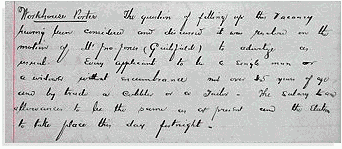 Workhouse Porter The question of filling up this Vacancy
having been considered and discussed it was resolved on the
motion of Mr Jno. Jones (Guilsfield) to advertise as
usual. Every applicant to be a single man or
a widower without incumbrance not over 45 years of age
and by trade a Cobbler or a Tailor. The Salary &
allowances to be the same as at present and the Election
to take place this day fortnight.